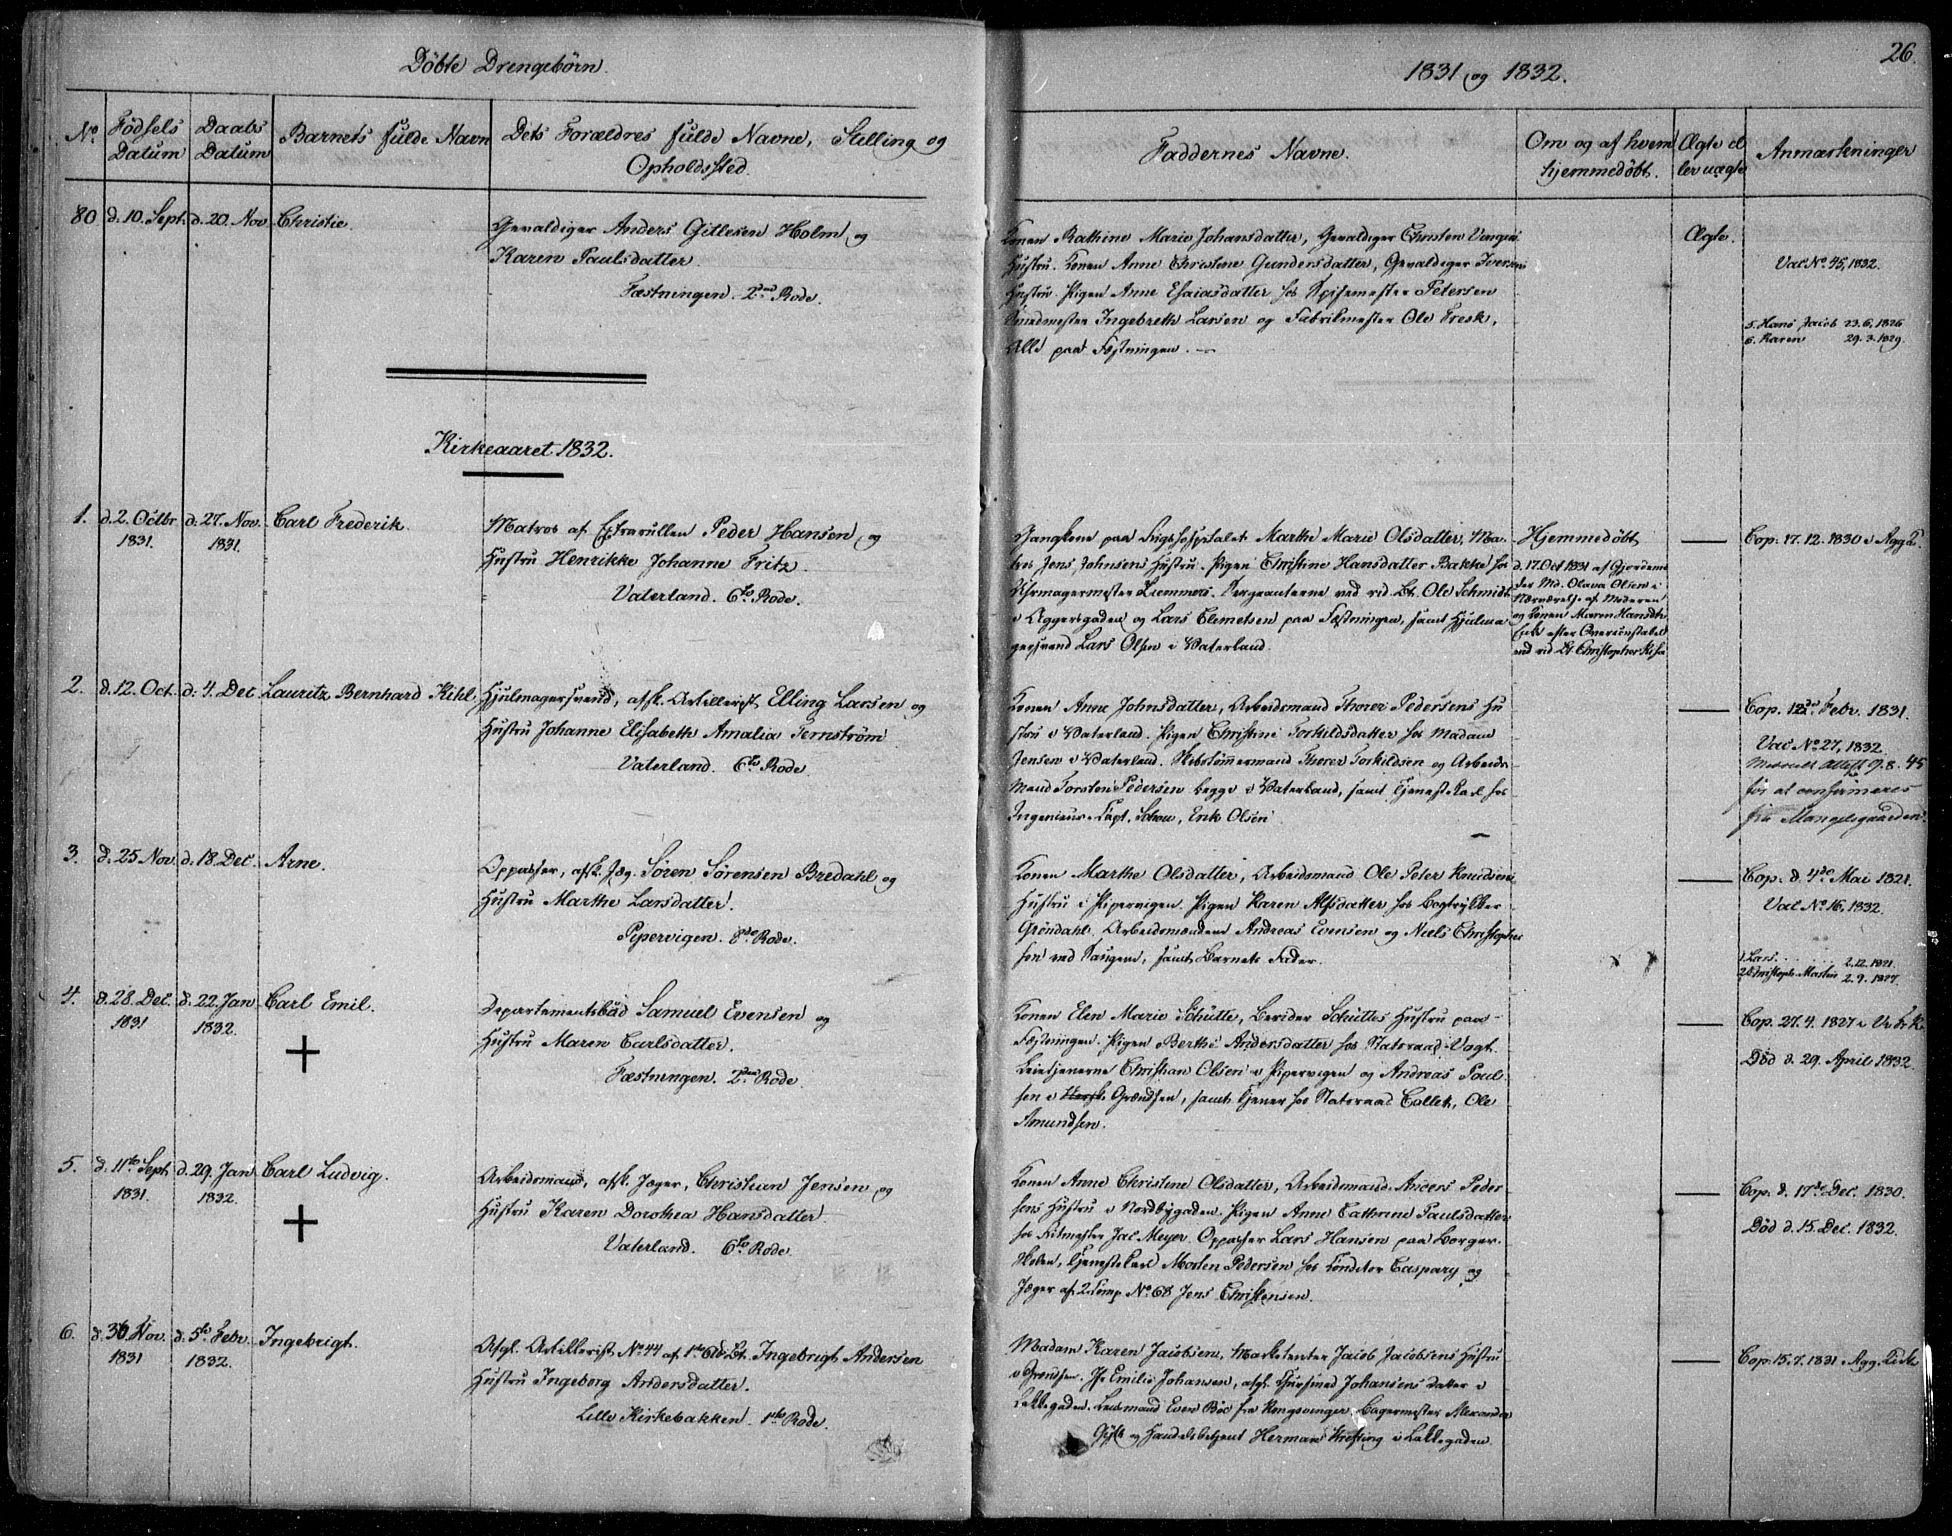 Döbte Drengebörn.
1831 og 1832.
26.
No
Födsels Datum
Daabs Datum
Barnets fulde Navn
Dets Forældres fulde Navne, Stilling og
Opholdssted.
Faddernes Navne.
Om og af hvem
hjemmedöbt.
Ægte el
ler uægte
Anmærkninger
80 d. 10. Sept. d. 20. Nov. Christie.
Gevaldiger Anders Gitlesen Holm og
Karen Paulsdatter
Fæstningen. 2den Rode.
Konen Kathine Marie Johansdatter, Gevaldiger Christen
Hustru. Konen Anne Christene Gundersdatter, Gevaldiger Iversens
Hustru. Pigen Anne Esaiasdatter hos Spisemester Petersen
Smedmester Ingebreth Larsen og Fabrikmester Ole Eresk,
Alle paa Fæstningen.
Ægte.
Vac No. 45, 1832.
5. Hans Jacob 23.6.1826
6. Karen 29.3.1829.
Kirkeaaret 1832.
1. d. 2. Octbr 1831. d. 27. Nov. 1831. Carl Frederik.
Matros af Extrarullen Peder Hansen og
Hustru Henrikke Johanne Fritz.
Vaterland. 6te Rode.
Gangkone paa Hospitalet Marthe Marie Olsdatter, Ma-
tros Jens Johnsens Hustru. Pigen Christine Hansdatter Bakke hos
Uhrmagermester Liemmers. Sergeanterne ved rid. Bt. Ole Schmidt
i Aggersgaden og Lars Clemetsen paa Fæstningen, samt Hjulma
gersvend Lars Olsen i Vaterland.
Hjemmedöbt
d. 17. Oct 1831 af Gjordemo
der Md. Olava Olsen i
Nærværelse af Moderen
og Konen Maren Hansdtr
Enke efter Overconstabel
ved rid Bt Christopher
Cop. 17.12.1830 i Agg K.
2. d. 12. Oct. d. 4. Dec. Lauritz Bernhard Kihl.
Hjulmagersvend, afsk. Artillerist Elling Larsen og
Hustru Johanne Elisabeth Amalia Ternström
Vaterland. 6te Rode.
Konen Anne Johnsdatter, Arbeidsmand Thorer Pedersens Hu
stru i Vaterland. Pigen Christine Torkildsdatter hos Madam
Jensen i Vaterland. Skibstömmermand Thorer Torkildsen og Arbeids
Mand Torsten Pedersen begge i Vaterland, samt Tjenestekarl hos
Ingenieur-Capt. Schou, Erik Olsen
Cop. 12te Febr. 1831.
Vac No. 27, 1832.
Meddelt Attest 9.8.45
for at confirmeres
fra Mangelsgaarden.
3. d. 25 Nov. d. 18. Dec. Arne.
Oppasser, afsk. Jæg. Sören Sörensen Bredahl og
Hustru Marthe Larsdatter.
Pipervigen. 8de Rode.
Konen Marthe Olsdatter, Arbeidsmand Ole Peter Knudsens
Hustru i Pipervigen. Pigen Karen Alfsdatter hos Bogtrykker
Gröndahl. Arbeidsmændene Andreas Evensen og Niels Christopher
sen ved Saugene, samt Barnets Fader.
Cop. d. 4de Mai 1821.
Vac No. 16, 1832.
1. Lars 2.12.1821.
2. Christoph. Martin 2.9.1827.
4. d. 28. Dec. 1831 d. 22. Jan 1832. Carl Emil.
Departementsbud Samuel Evensen og
Hustru Maren Carlsdatter.
Fæstningen. 2den Rode
Konen Elen Marie Schütte, Berider Schüttes Hustru paa
Fæstningen. Pigen Berthe Andersdatter hos Statsraad Vogt.
Leietjenerne Christian Olsen i Pipervigen og Andreas Poul-
sen i Grændsen, samt Tjener hos Statsraad Collett, Ole
Amundsen.
Cop. 27.4.1827 i Vr Fr K.
Död d. 29. April 1832.
5. d. 11te Sept 1831. d. 29. Jan 1832. Carl Ludvig.
Arbeidsmand, afsk. Jæger, Christian Jensen og
Hustru Karen Dorothea Hansdatter.
Vaterland. 6te Rode.
Konen Anne Christine Olsdatter, Arbeidsmand Anders Peder-
sens Hustru i Nordbygaden. Pigen Anne Cathrine Paulsdatter
hos Jac Meyer. Oppasser Lars Hansen paa Borger-
skolen, Tjenestekarl Morten Pedersen hos Conditor Caspary og
Jæger af 2 Comp No. 68 Jens Christensen.
Cop. d. 17de Dec. 1830.
Död d. 15. Dec. 1832.
6. d. 30. Nov. 1831 d. 5te Febr. 1832. Ingebrigt.
Afgl. Artillerist No. 44 af 1ste Bt. Ingebrigt Andersen
Hustru Ingeborg Andersdatter.
Lille Kirkebakken. 1ste Rode.
Madam Karen Jacobsen, Marketenter Jacob Jacobsens Hustru
i Grændsen. Jfr Emilie Johansen, afgl. Johansens Datter i
Lakkegaden. Lensmand Even Böe fra Kongsvinger, Bagermester Alexander
og Handelsbetjent Herman Krefting i Lakkegaden.
Cop. 15.7.1831 i Agg. Kirke